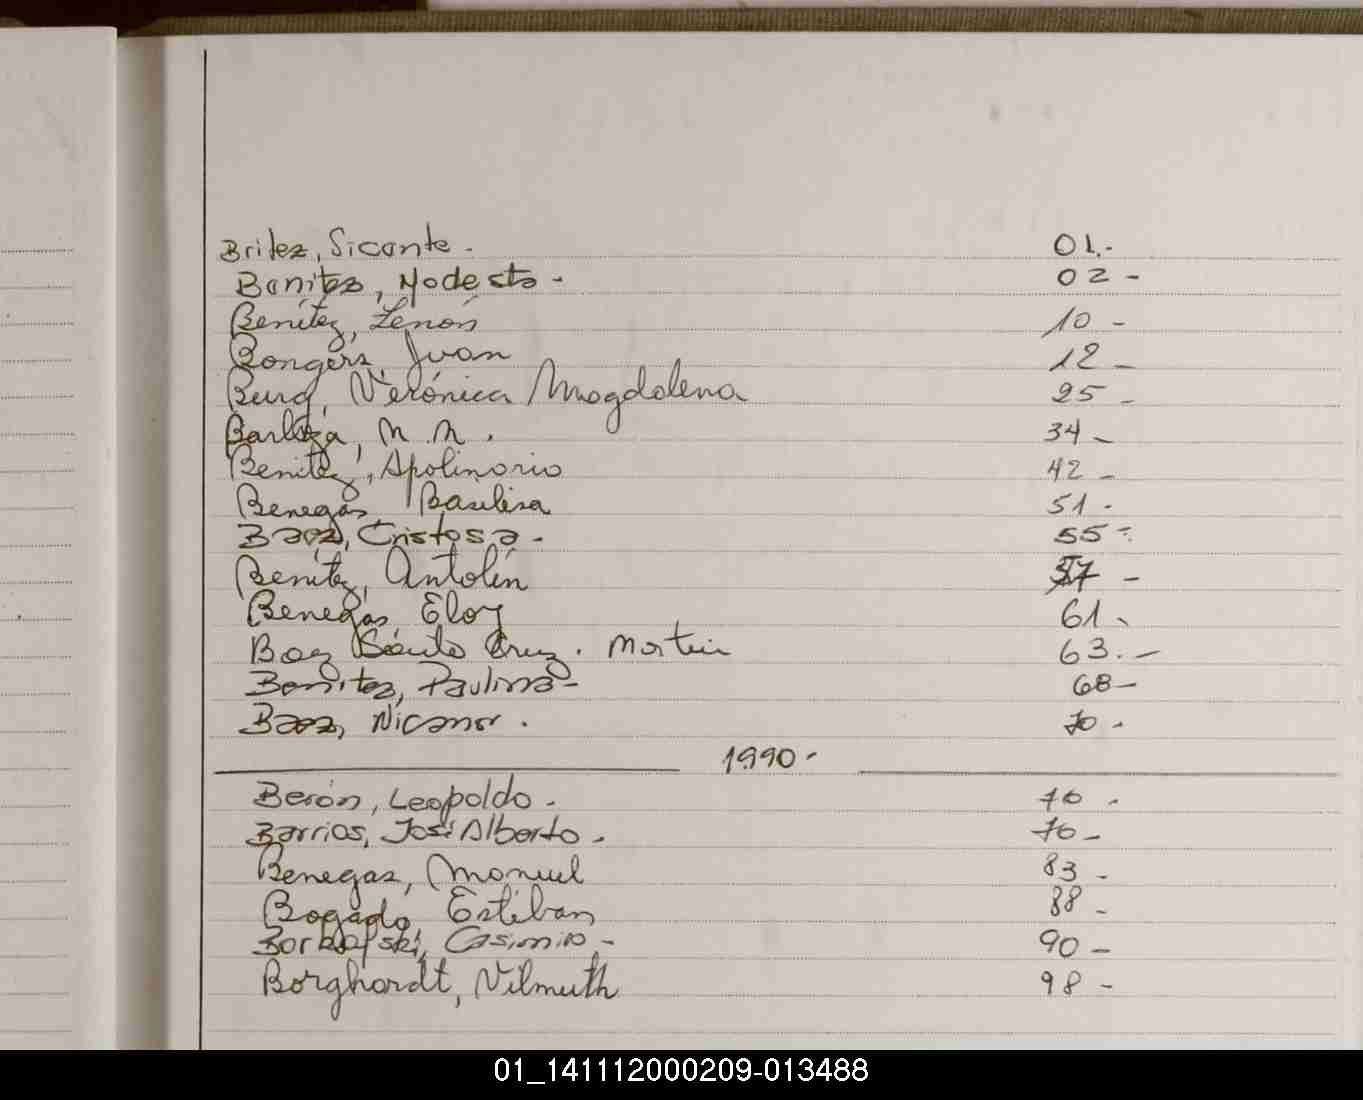 Britez, Sicante. 01.-
Benitez, Modesto - 02 -
Benítez, Zenón 10 -
Bongers, Juan 12 -
Burg, Verónica Magdalena 25 -
Barboza, N. N. 34 -
Benitez, Apolinario 42 -
Benegas, Baselisa 51 -
Baez, Cristosa - 55 -
Benítez, Antolín 57 -
Benegas, Eloy 61 -
Baez Santa Cruz. Martin 63. -
Benitez, Paulina - 68 -
Baez, Nicanor. 70 -
1990 -
Berón, Leopoldo. 76 -
Barrios, José Alberto. 76 -
Benegas, Manuel 83 -
Bogado, Esteban 88 -
Casimiro - 90 -
Borghardt, Vilmuth 98 -
01_141112000209-013488